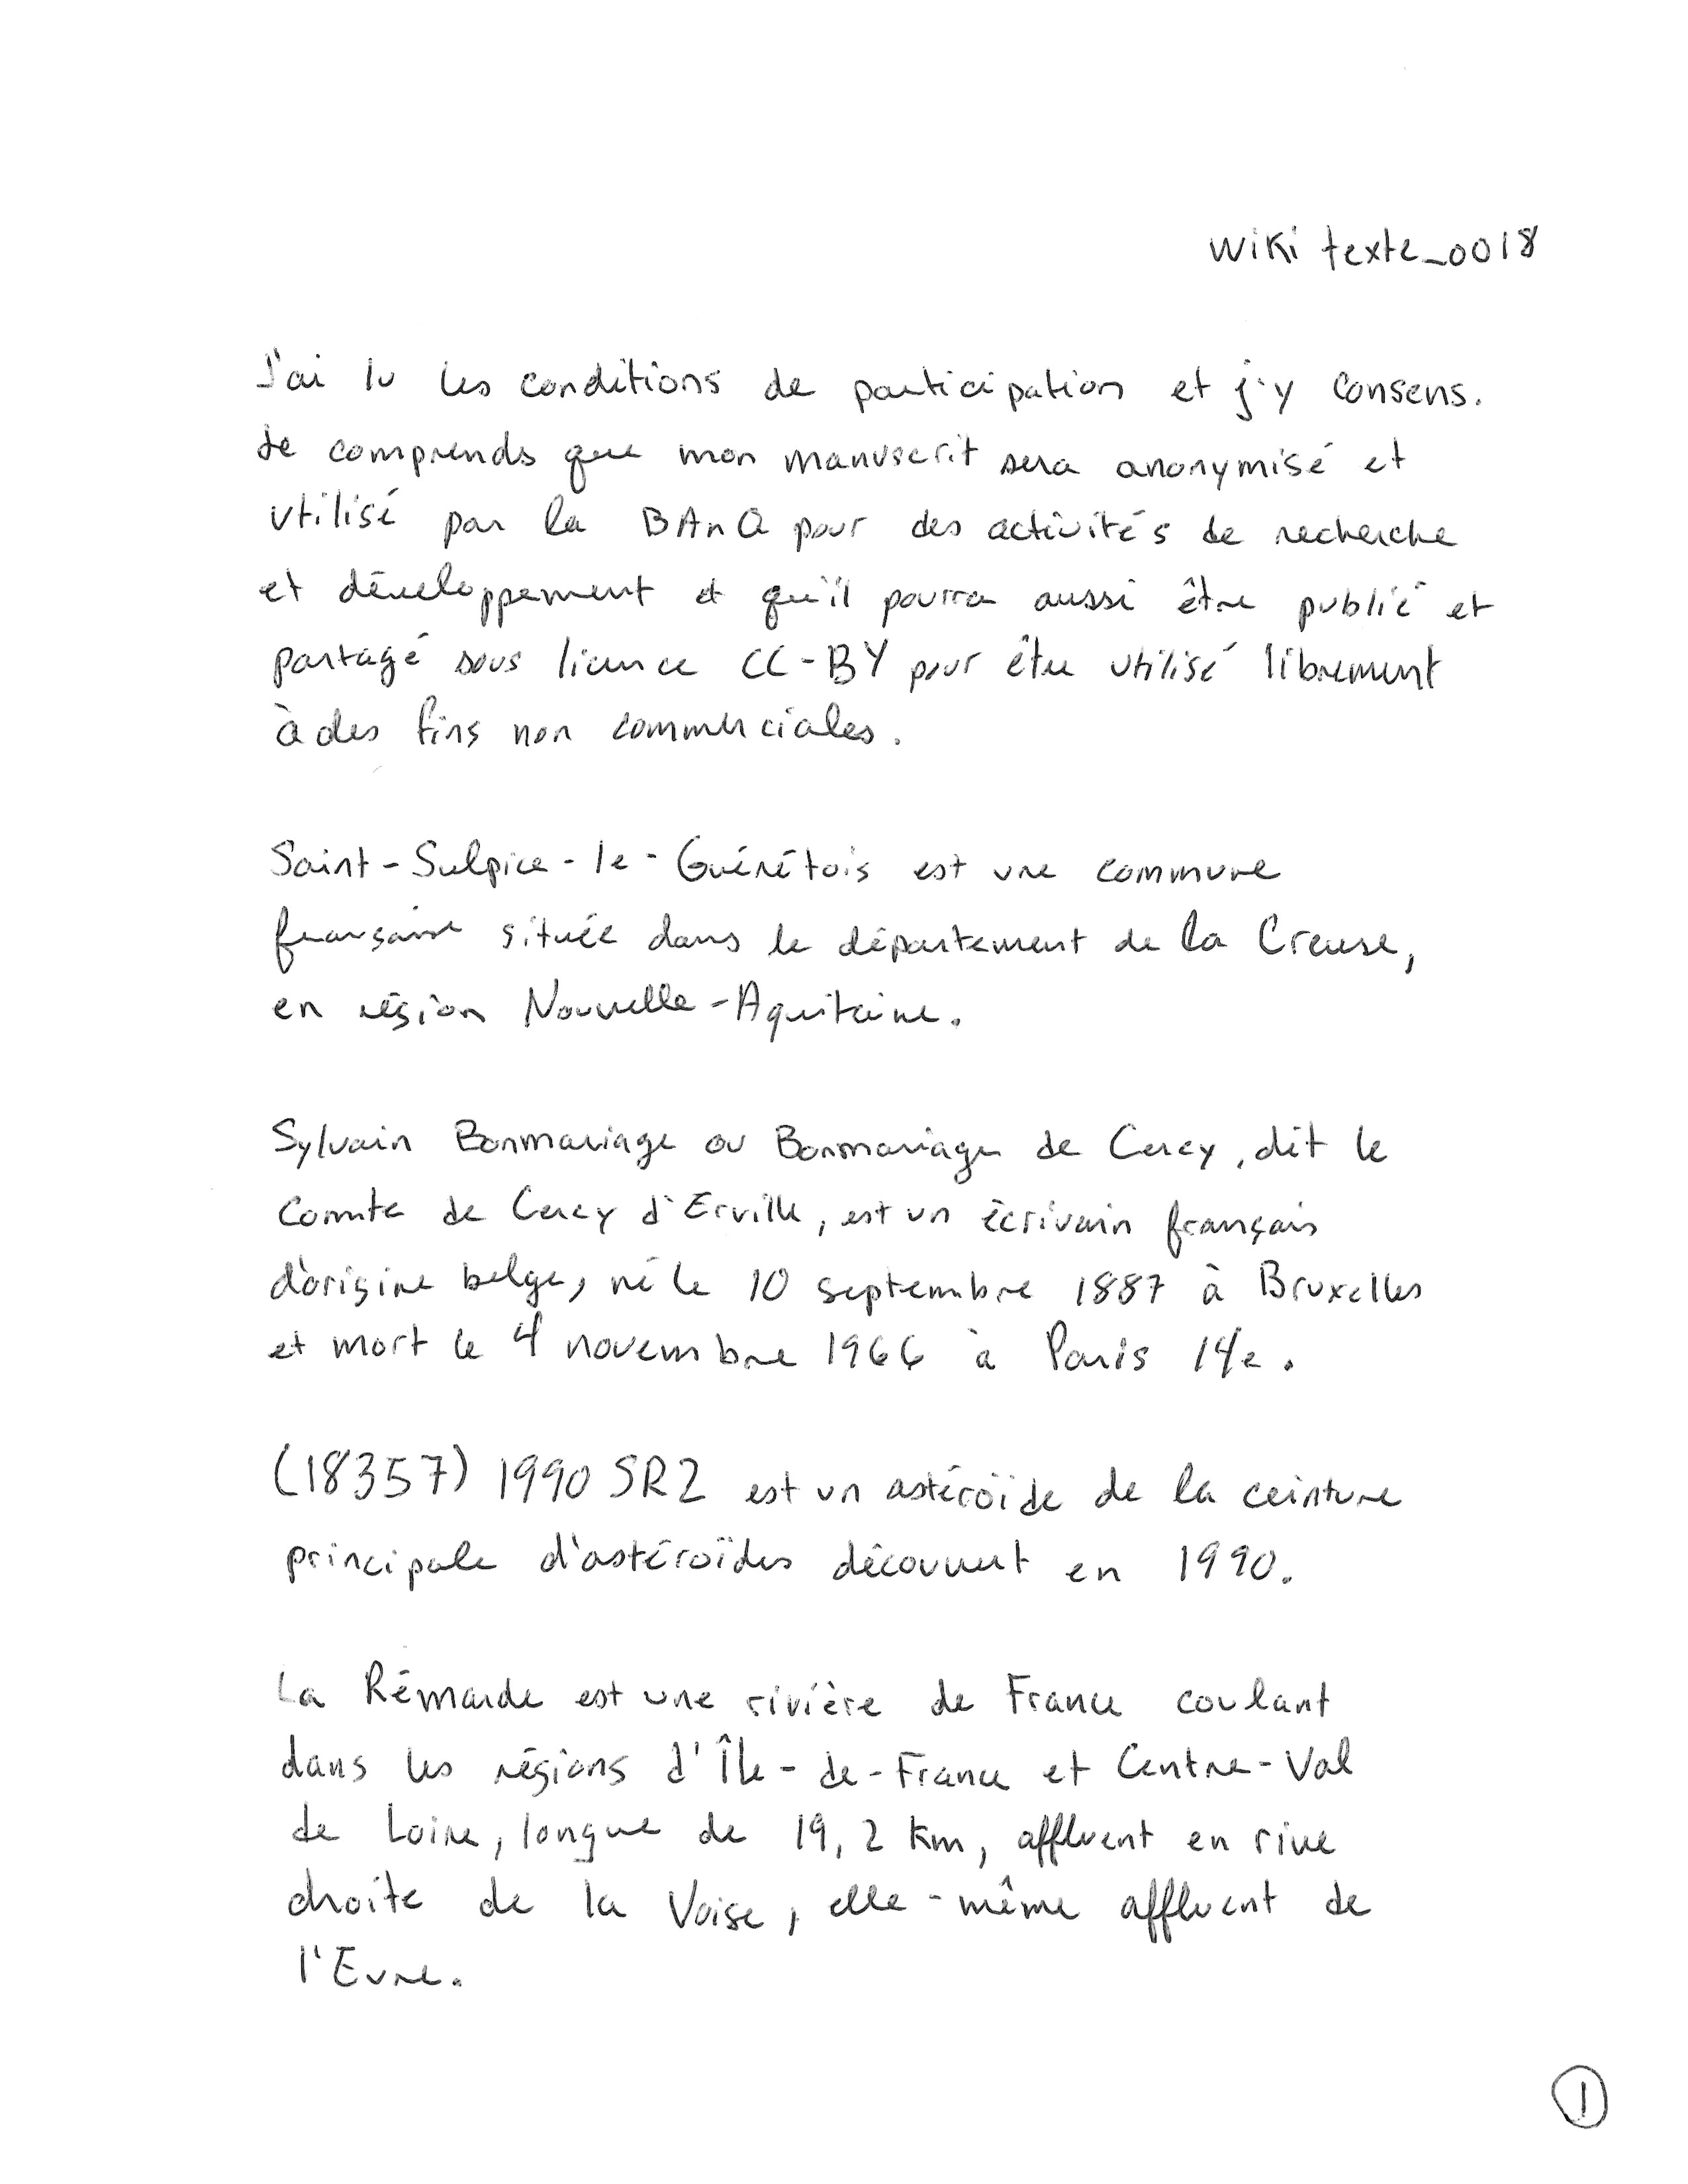 Wiki texte_0018
J'ai lu les conditions de participation et j'y consens.
Je comprends que mon manuscrit sera anonymisé et
utilisé par la BAnQ pour des activités de recherche
et développement et qu'il pourra aussi être publié et
partagé sous licence CC-BY pour être utilisé librement
à des fins non commerciales.
Saint-Sulpice-le-Guérétois est une commune
française située dans le département de la Creuse,
en région Nouvelle-Aquitaine.
Sylvain Bonmariage ou Bonmariage de Cercy, dit le
Comte de Cercy d'Erville, est un écrivain français
d'origine belge, né le 10 septembre 1887 à Bruxelles
et mort le 4 novembre 1966 à Paris 14e.
(18357) 1990 SR2 est un astéroïde de la ceinture
principale d'astéroïdes découvert en 1990.
La Rémarde est une rivière de France coulant
dans les régions d'Île-de-France et Centre-Val
de Loire, longue de 19,2 km, affluent en rive
droite de la Voise, elle-même affluent de
l'Eure.
1